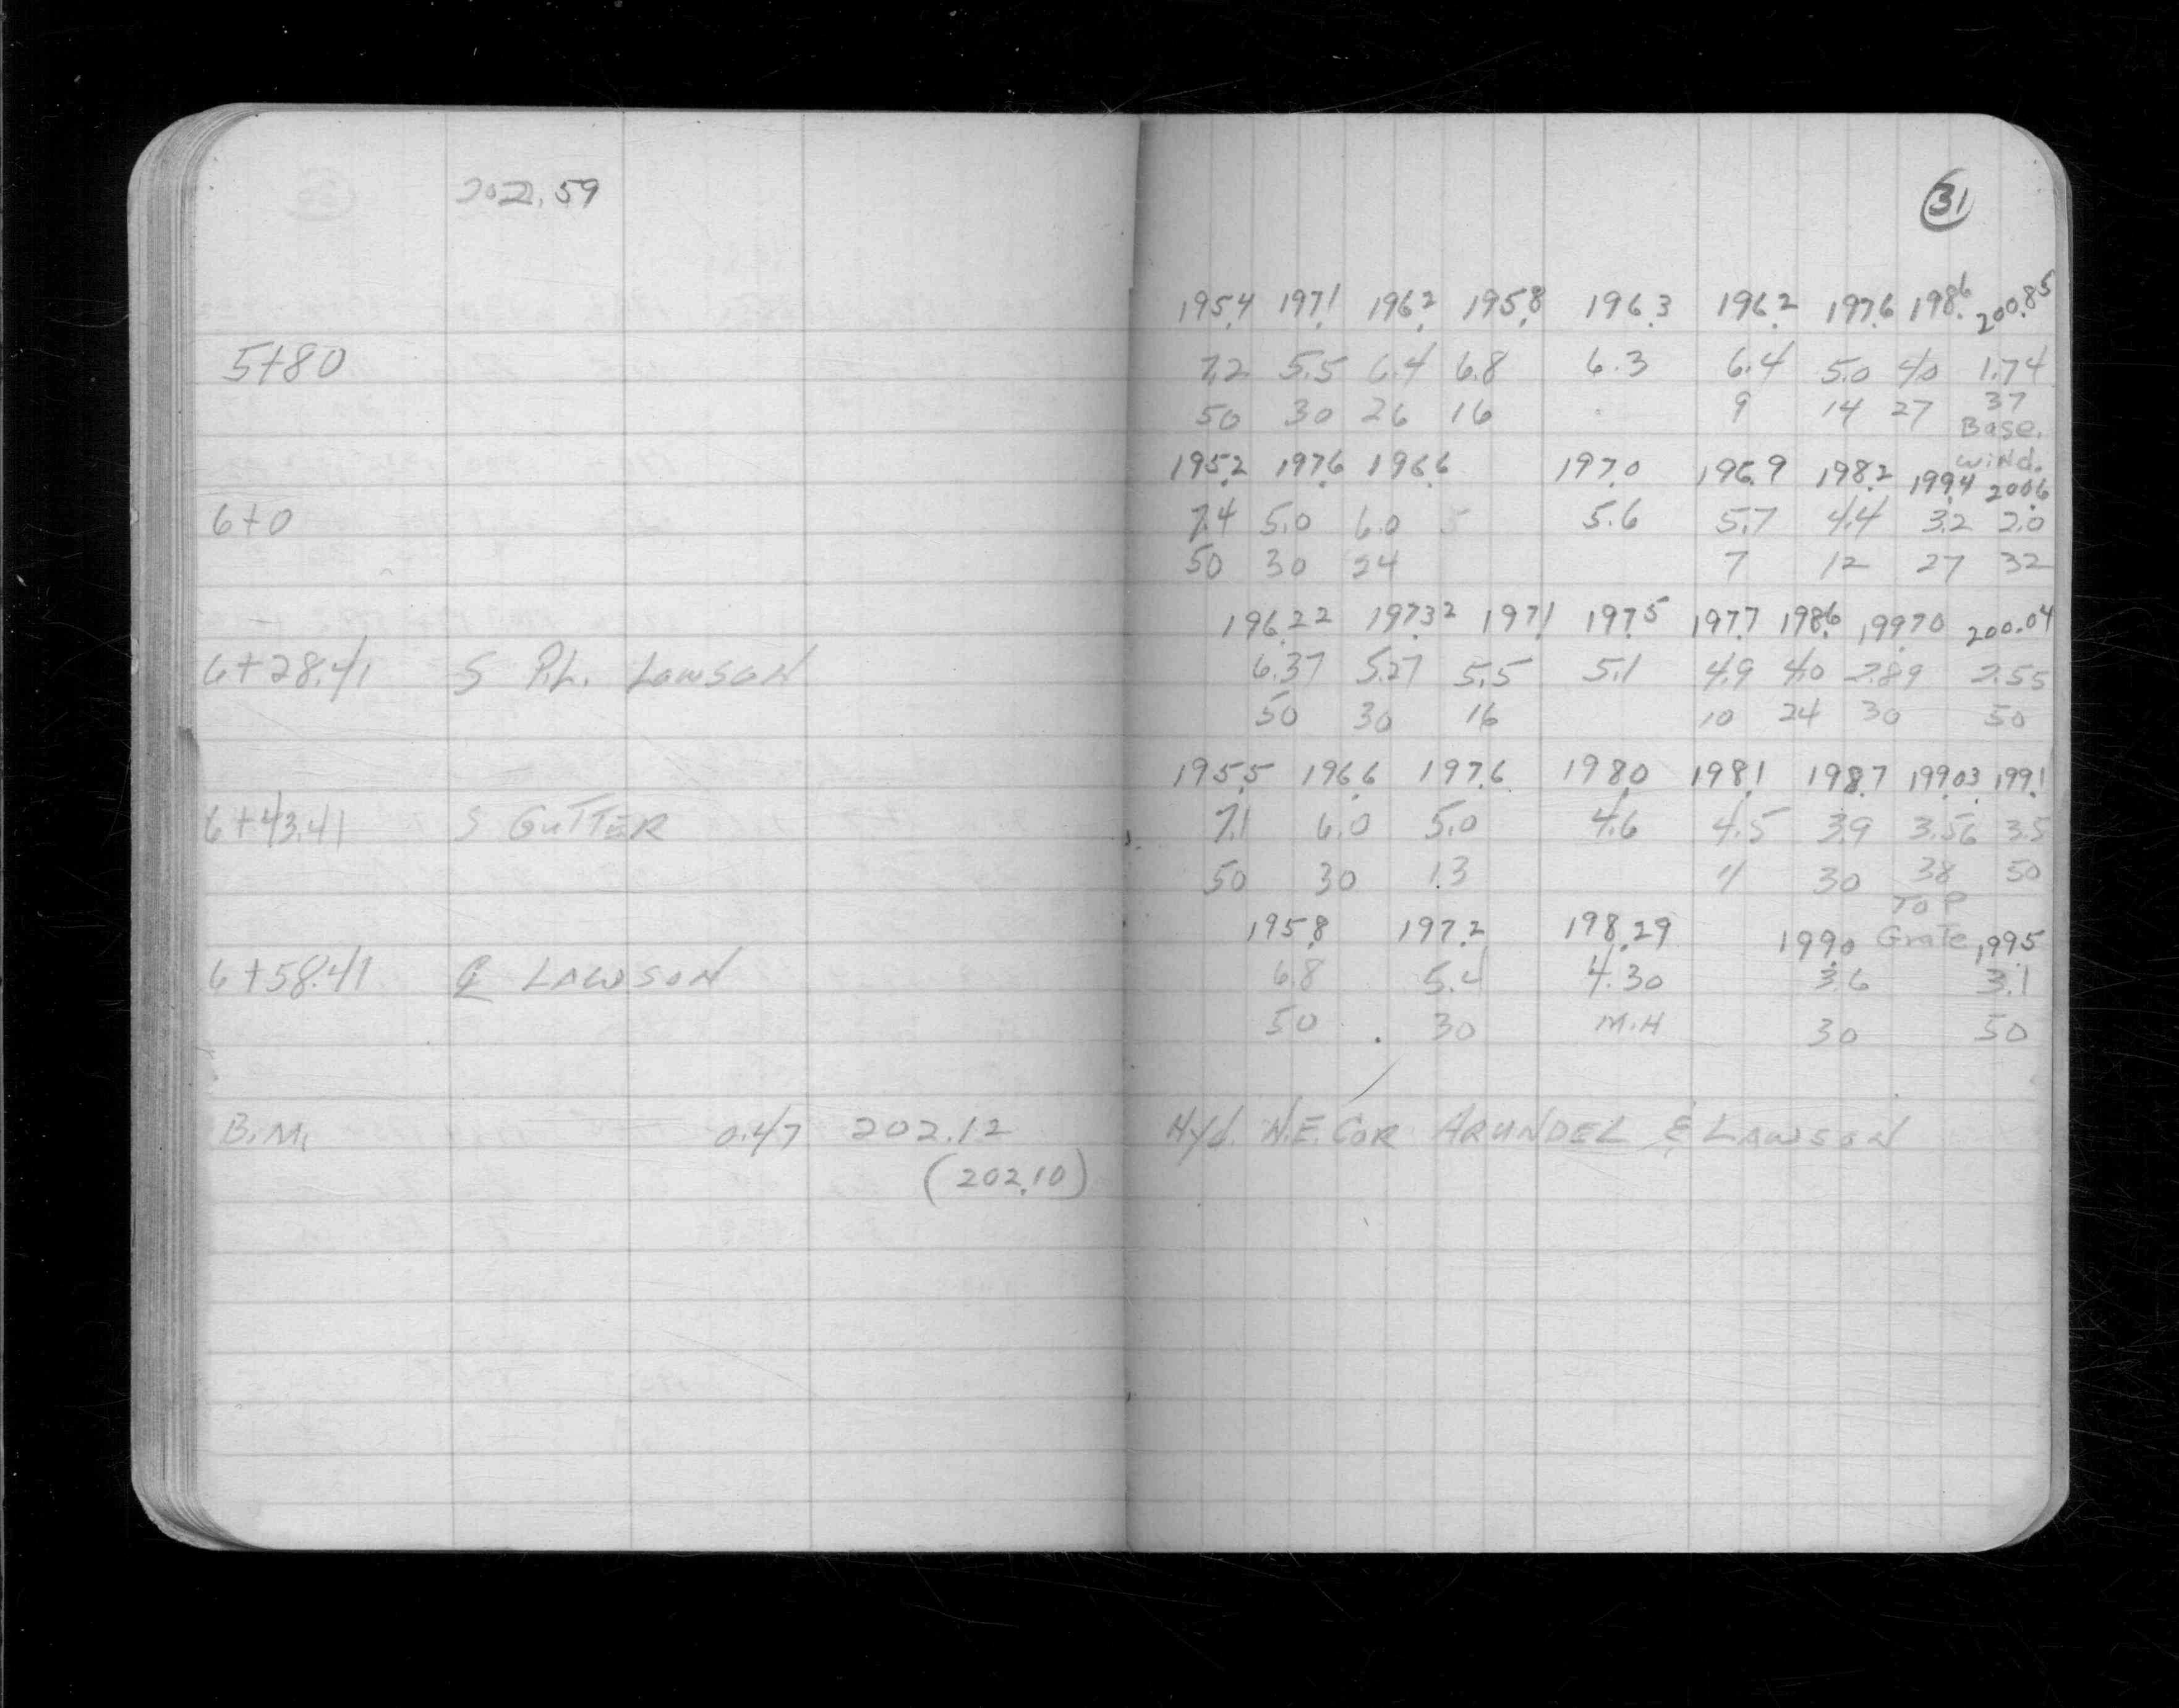 202.59
31
195.4 197.1 196.2 195.8 196.3 196.2 197.6 198.6 200.85
5+80 7.2 5.5 6.4 6.8 6.3 6.4 5.0 4.0 1.74
50 30 26 16 9 14 27 37
Base.
Wind.
195.2 197.6 196.6 197.0 196.9 198.2 199.4 200.6
6+0 7.4 5.0 6.0 5.6 5.7 4.4 3.2 2.0
50 30 24 7 12 27 32
196.22 197.32 197.1 197.5 197.7 198.6 199.70 200.04
6+28.41 S P.L. LAWSON 6.37 5.27 5.5 5.1 4.9 4.0 2.89 2.55
50 30 16 10 24 30 50
195.5 196.6 197.6 198.0 198.1 198.7 199.03 199.1
6+43.41 S GUTTER 7.1 6.0 5.0 4.6 4.5 3.9 3.56 3.5
50 30 13 4 30 38 50
TOP
Grate
195.8 197.2 198.29 199.0 199.5
6+58.41 ℄ LAWSON 6.8 5.4 4.30 3.6 3.1
50 30 M.H 30 50
B.M. 0.47 202.12 Hyd. N.E. COR ARUNDEL & LAWSON
(202.10)